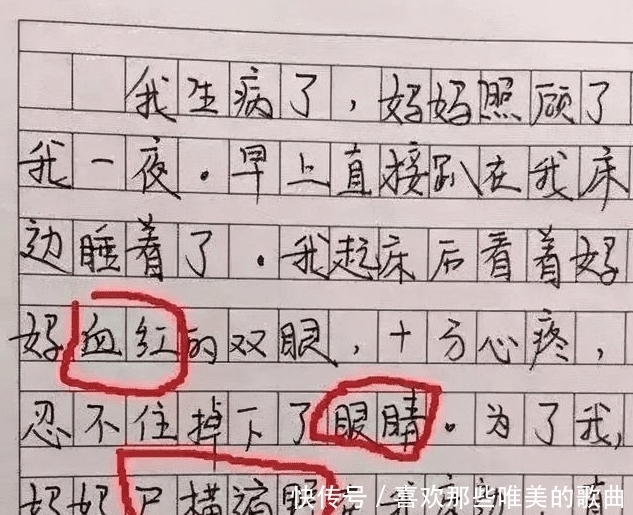 我生病了，妈妈照顾了
我一夜。早上直接趴在我床
边睡着了。我起床后看着妈
妈血红的双眼，十方心疼，
忍不住掉下了眼睛。为了我，
妈妈尸横遍野
快传号/喜欢那些唯美的歌曲